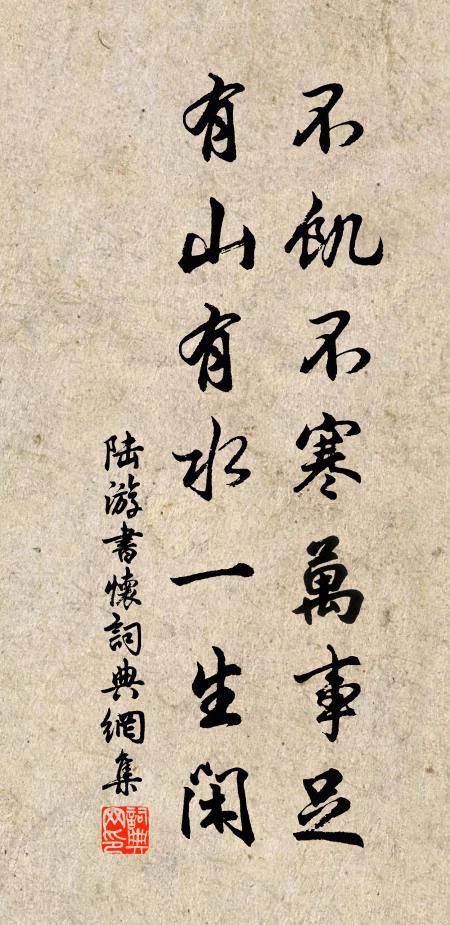 不飢不寒萬事足
有山有水一生閑
陆游書懷詞典網集
詞典网印